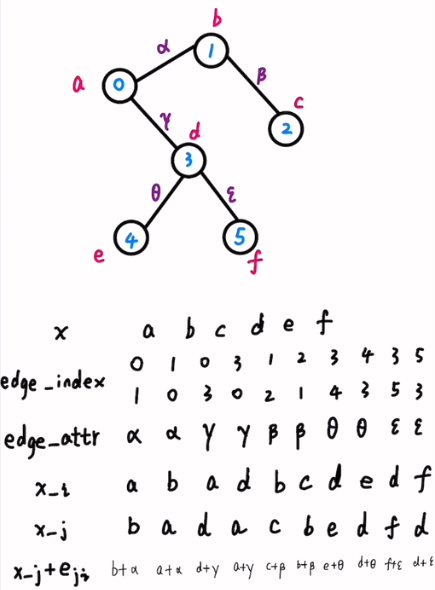 b
α 1
a 0 β
γ d c
2
3
θ ε
e 4 5
f
x a b c d e f
0 1 0 3 1 2 3 4 3 5
edge_index
1 0 3 0 2 1 4 3 5 3
edge_attr α α γ γ β β θ θ ε ε
x_i a b a d b c d e d f
x_j b a d a c b e d f d
x_j+eji b+α a+α d+γ a+γ c+β b+β e+θ d+θ f+ε d+ε